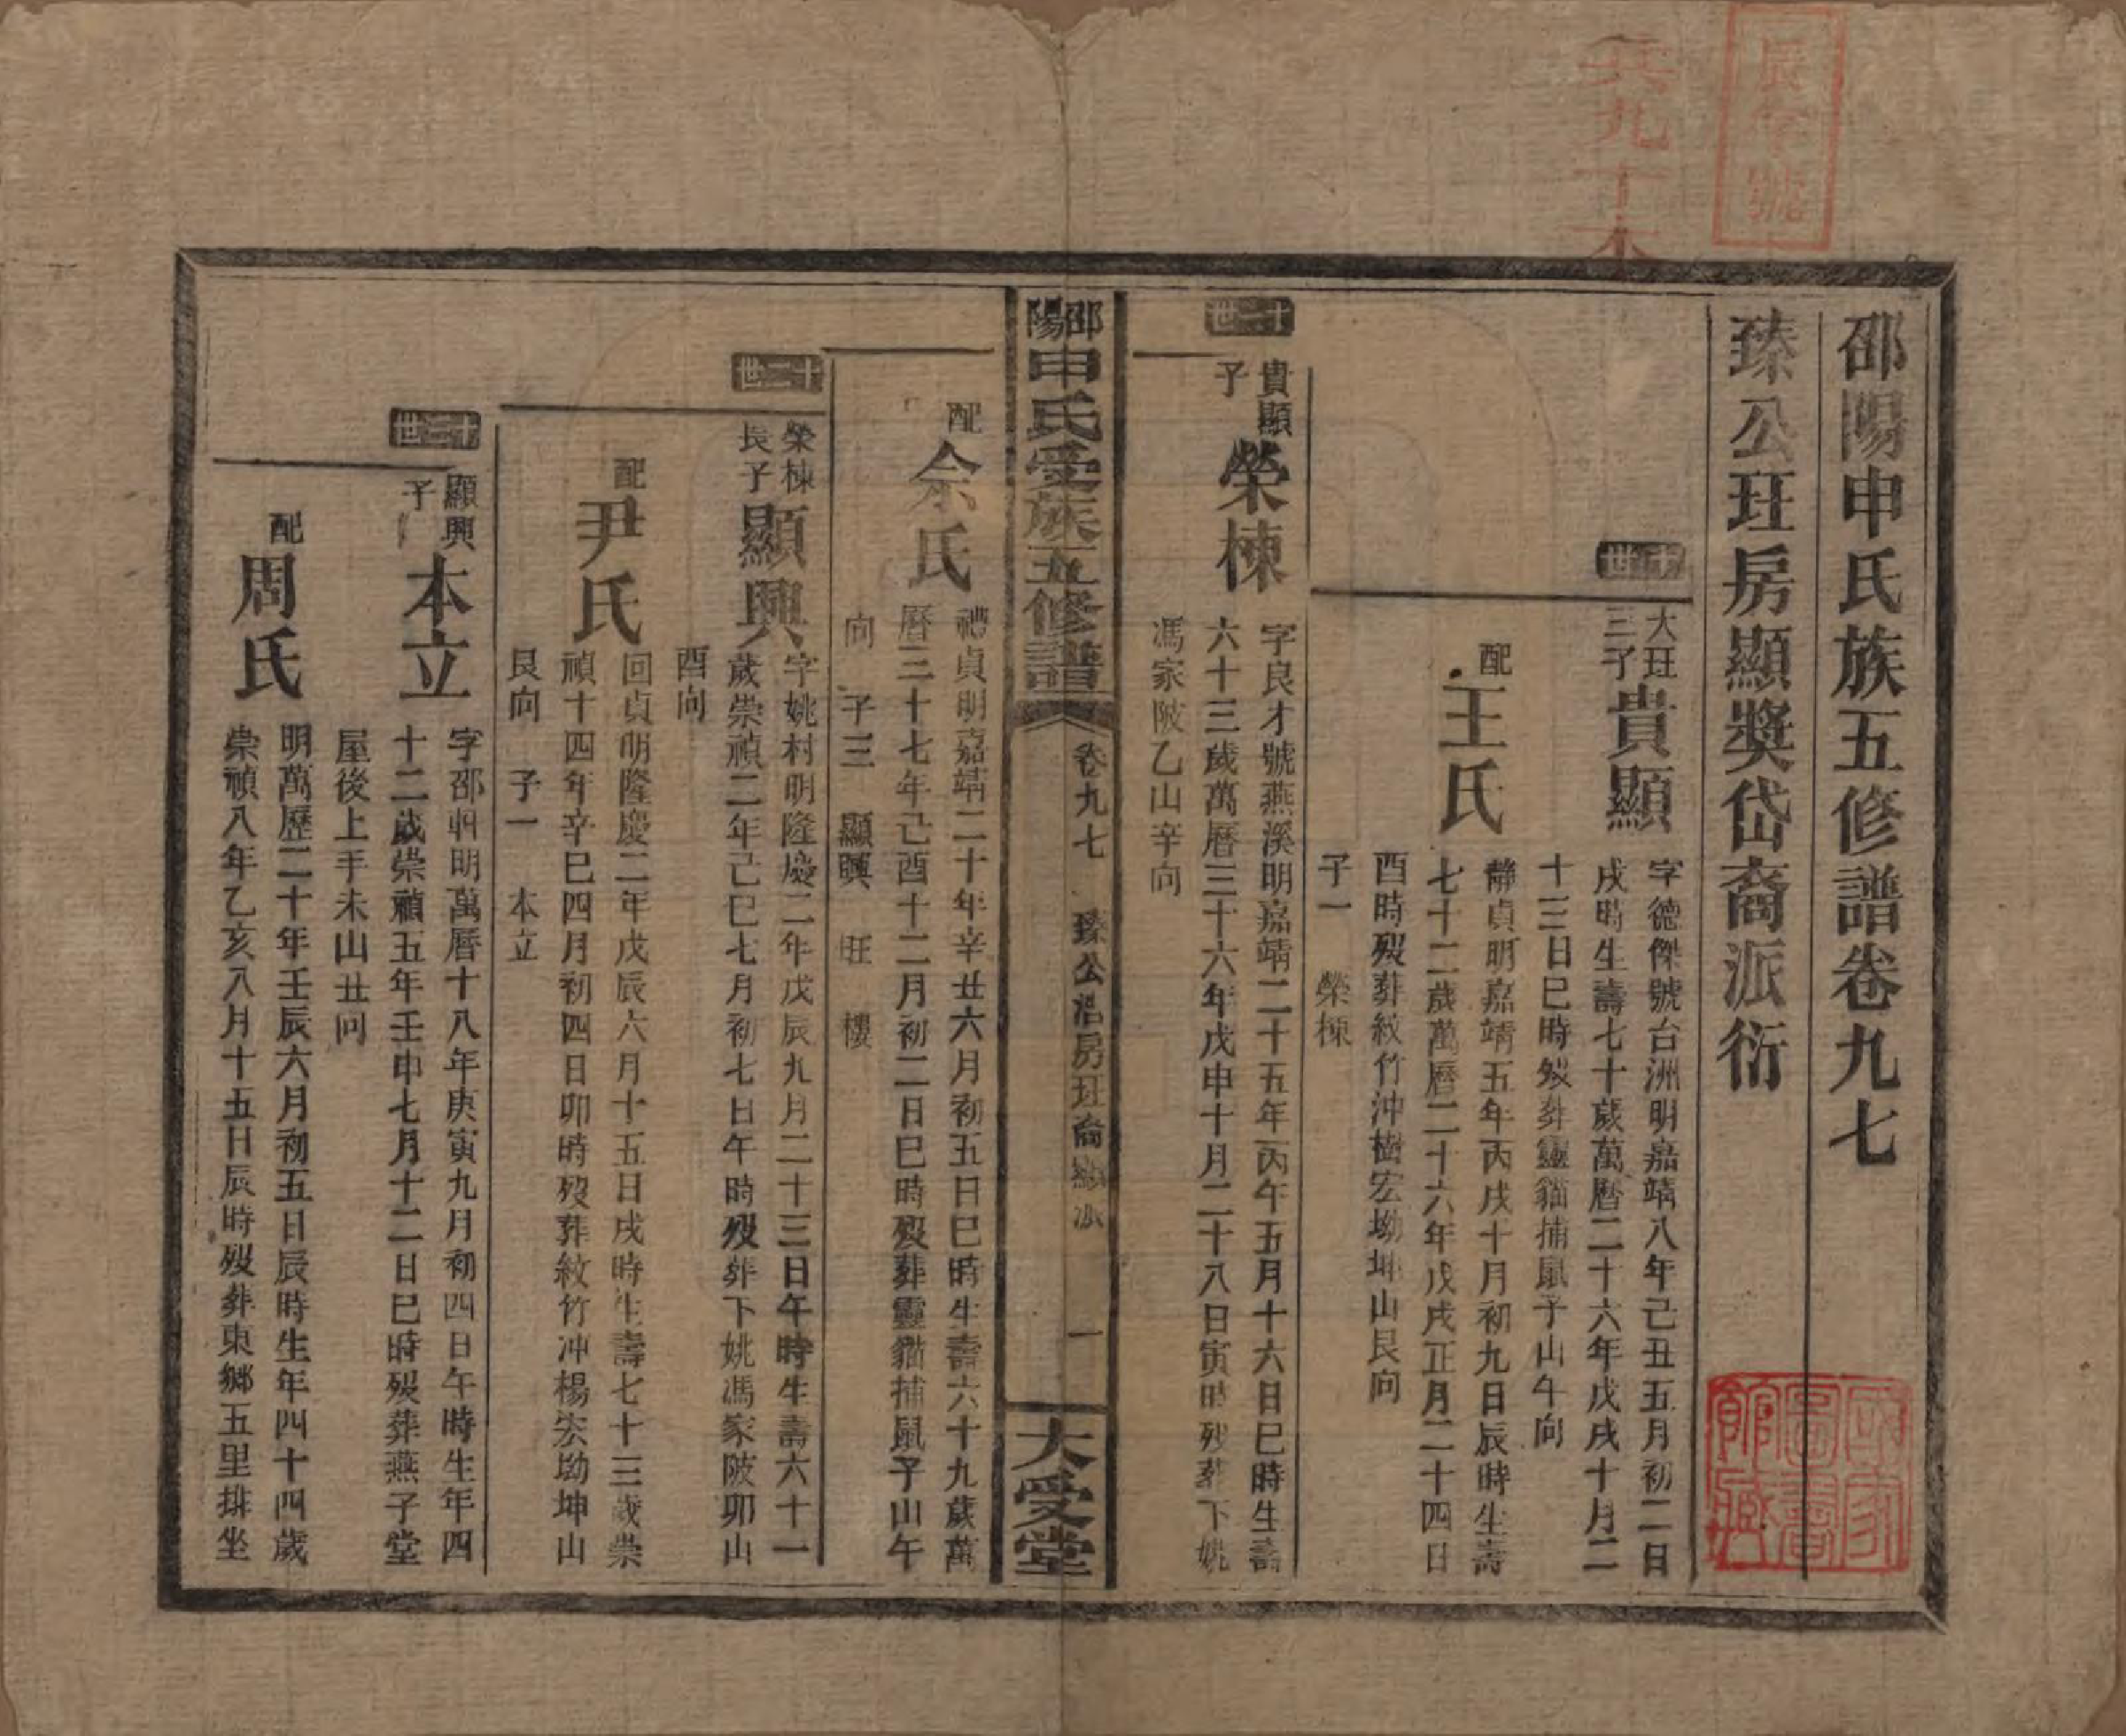 辰字號
共九十本
邵陽申氏族五修譜卷九七
臻公玨房顯獎岱裔派衍
十世
大玨三子
貴顯
字德傑號台洲明嘉靖八年己丑五月初二日
戌時生壽七十歲萬曆二十六年戊戌十月二
十三日巳時歿葬靈貓捕鼠子山午向
配
王氏
靜貞明嘉靖五年丙戌十月初九日辰時生壽
七十二歲萬曆二十六年戊戌正月二十四日
酉時歿葬紋竹沖樹宏坳坤山艮向
子一 榮棟
十一世
貴顯子
榮棟
字良才號燕溪明嘉靖二十五年丙午五月十六日巳時生壽
六十三歲萬曆三十六年戊申十月二十八日寅時歿葬下姚
馮家陂乙山辛向
邵陽申氏受族五修譜
卷九七
臻公浩房玨裔
一
大受堂
配
余氏
禮貞明嘉靖二十年辛丑六月初五日巳時生壽六十九歲萬
曆三十七年己酉十二月初二日巳時歿葬靈貓捕鼠子山午
向 子三 顯興 旺 樓
十二世
榮棟長子
顯興
字姚村明隆慶二年戊辰九月二十三日午時生壽六十一
歲崇禎二年己巳七月初七日午時歿葬下姚馮家陂卯山
酉向
配
尹氏
回貞明隆慶二年戊辰六月十五日戌時生壽七十三歲崇
禎十四年辛巳四月初四日卯時歿葬紋竹沖楊宏坳坤山
艮向 子一 本立
十三世
顯興子
本立
字邵軒明萬曆十八年庚寅九月初四日午時生年四
十二歲崇禎五年壬申七月十二日巳時歿葬燕子堂
屋後上手未山丑向
配
周氏
明萬歷二十年壬辰六月初五日辰時生年四十四歲
崇禎八年乙亥八月十五日辰時歿葬東鄉五里排坐
國家圖書館藏